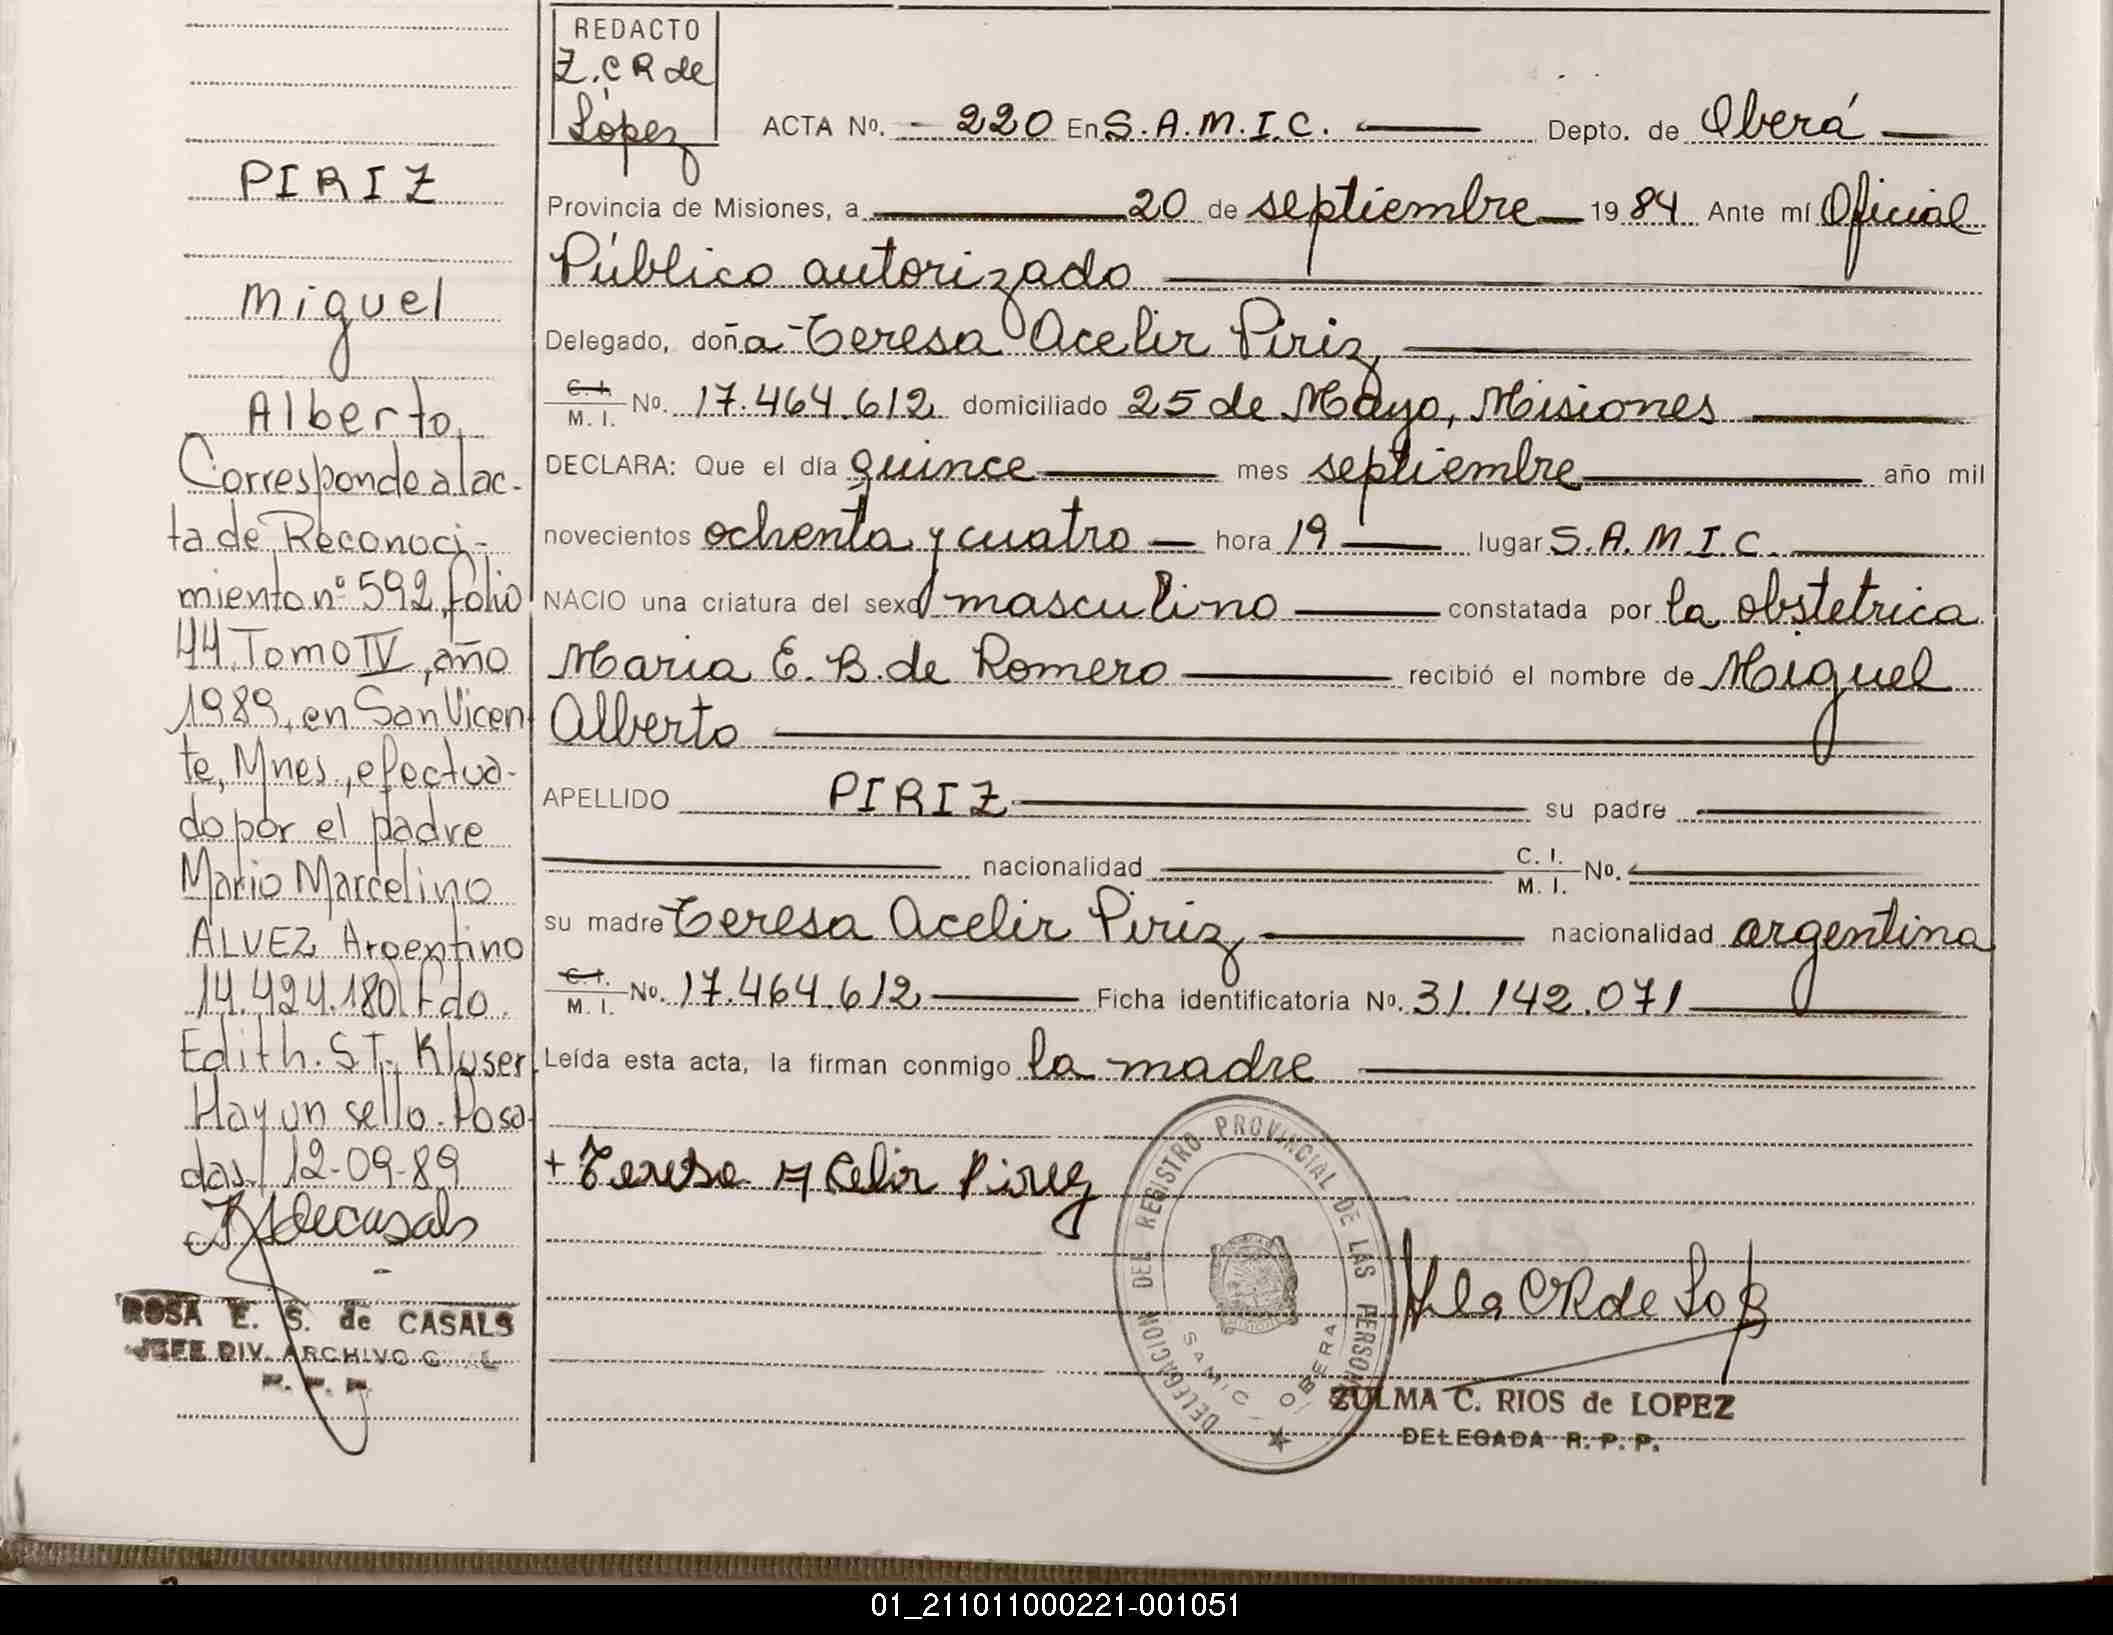 REDACTO
Z.C R de
López
ACTA Nº. 220 En S.A.M.I.C. Depto. de Oberá
Provincia de Misiones, a 20 de septiembre 19 84 Ante mí Oficial
Público autorizado
Delegado, doña Teresa Acelir Piriz
C. I. M. I. No. 17.464.612 domiciliado 25 de Mayo, Misiones
DECLARA: Que el día quince mes septiembre año mil
novecientos ochenta y cuatro hora 19 lugar S.A.M.I.C.
NACIO una criatura del sexo masculino constatada por la obstetrica
Maria E. B. de Romero recibió el nombre de Miguel
Alberto
APELLIDO PIRIZ su padre
nacionalidad C. I. M. I. No.
su madre Teresa Acelir Piriz nacionalidad argentina
C. I. M. I. No. 17.464.612 Ficha identificatoria No. 31.142.071
Leída esta acta, la firman conmigo la madre
+ Teresa Acelir Piriz
DELEGACION DEL REGISTRO PROVINCIAL DE LAS PERSONAS
SAMIC - OBERA
ZULMA C. RIOS de LOPEZ
DELEGADA R. P. P.
PIRIZ
Miguel
Alberto
Corresponde al ac-
ta de Reconoci-
miento nº 592, folio
44, Tomo IV, año
1989, en San Vicen
te, Mnes., efectua-
do por el padre
Mario Marcelino
ALVEZ Argentino
14.424.180. Fdo.
Edith. S T. Klyser
Hay un sello. Posa-
das, 12-09-89
ROSA E. S. de CASALS
JEFE DIV. ARCHIVO G
01_211011000221-001051